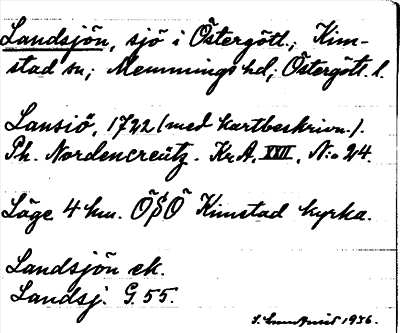 Landsjön, sjö i Östergötl.; Kim-
stad sn; Memmings hd; Östergötl. l.
Lansiö, 1722 (med kartbeskrivn.).
Ph. Nordencreutz. Kr.A. XXII, N:o 24.
Läge 4 km. ÖSÖ Kimstad kyrka.
Landsjön ek.
Landsj. G. 55.
1936.